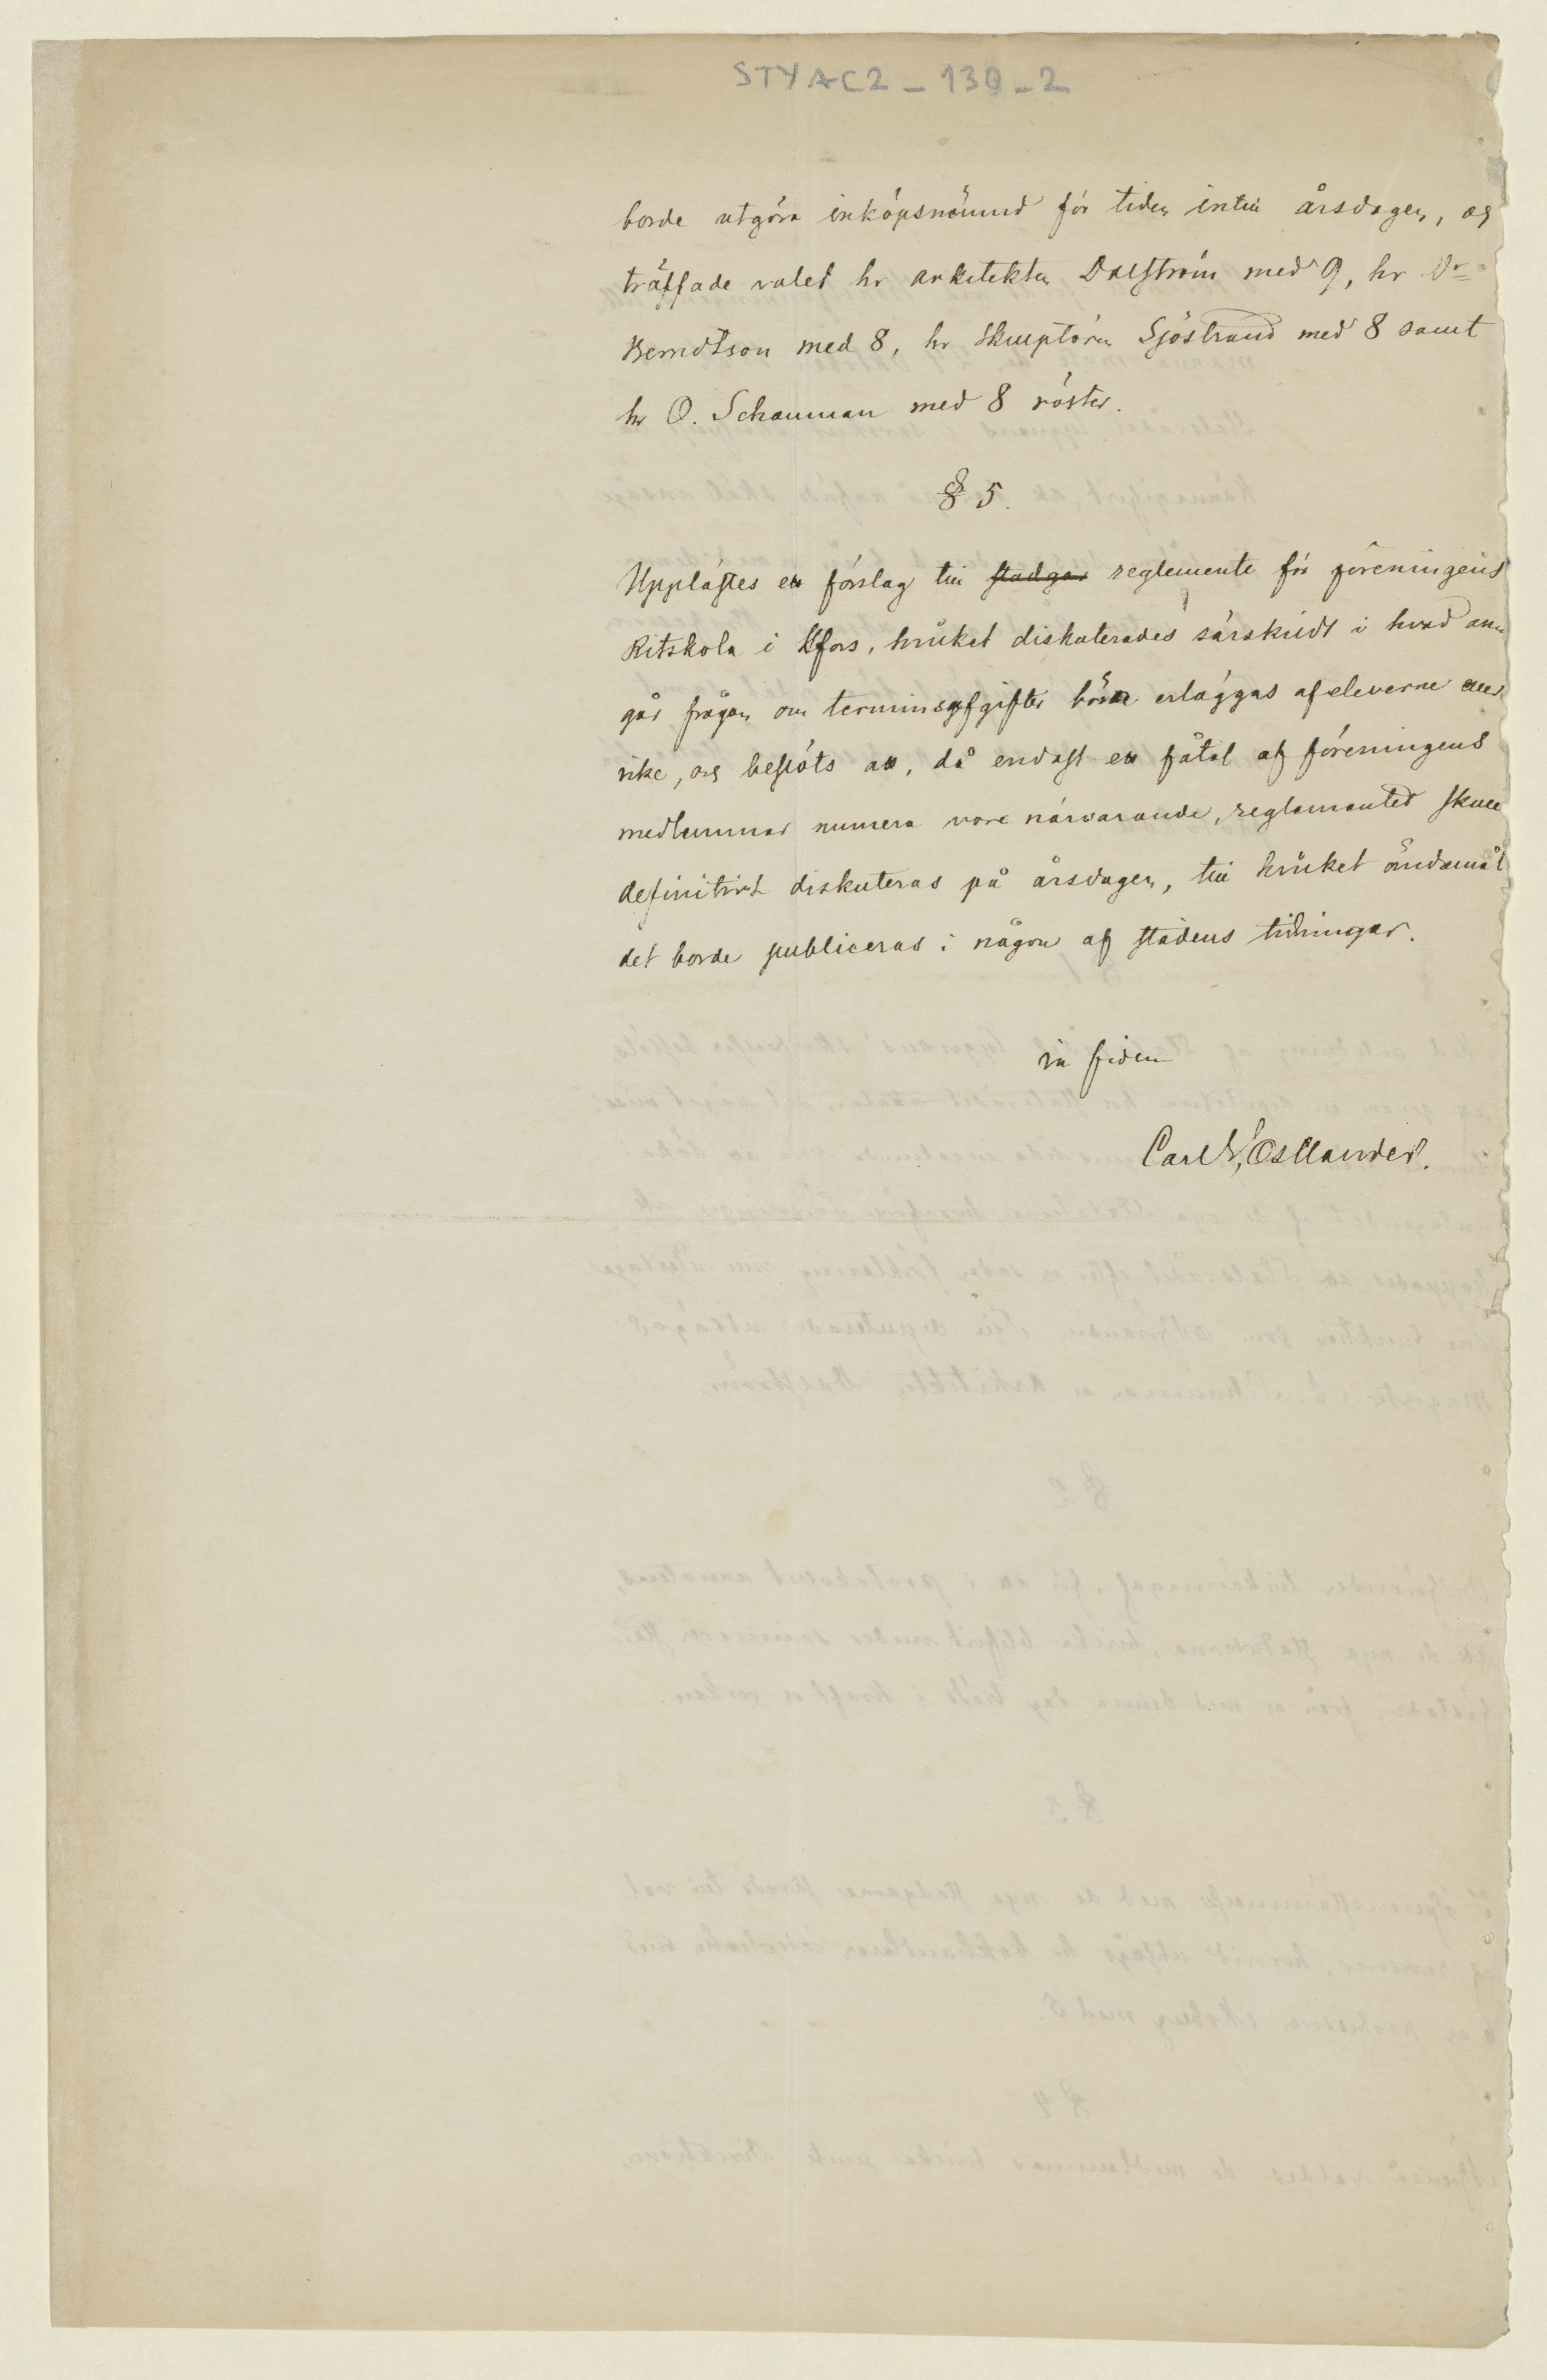 STYAC2-130-2
borde utgöra inköpsnämnd för tiden intill årsdagen, och
träffade valet hr arkitekten Dalström med 9, hr Dr
Berndtson med 8, hr Skulptören Sjöstrand med 8 samt
hr O. Schauman med 8 röster.
§ 5.
Upplästes ett förslag till stadgar reglemente för föreningens
Ritskola i Hfors, hvilket diskuterades särskildt i hvad an-
går frågan om terminsafgifter böra erläggas af eleverne eller
icke, och beslöts att, då endast ett fåtal af föreningens
medlemmar numera vore närvarande, reglementet skulle
definitivt diskuteras på årsdagen, till hvilket ändamål
det borde publiceras i någon af stadens tidningar.
in fidem
Carl G. Estlander.